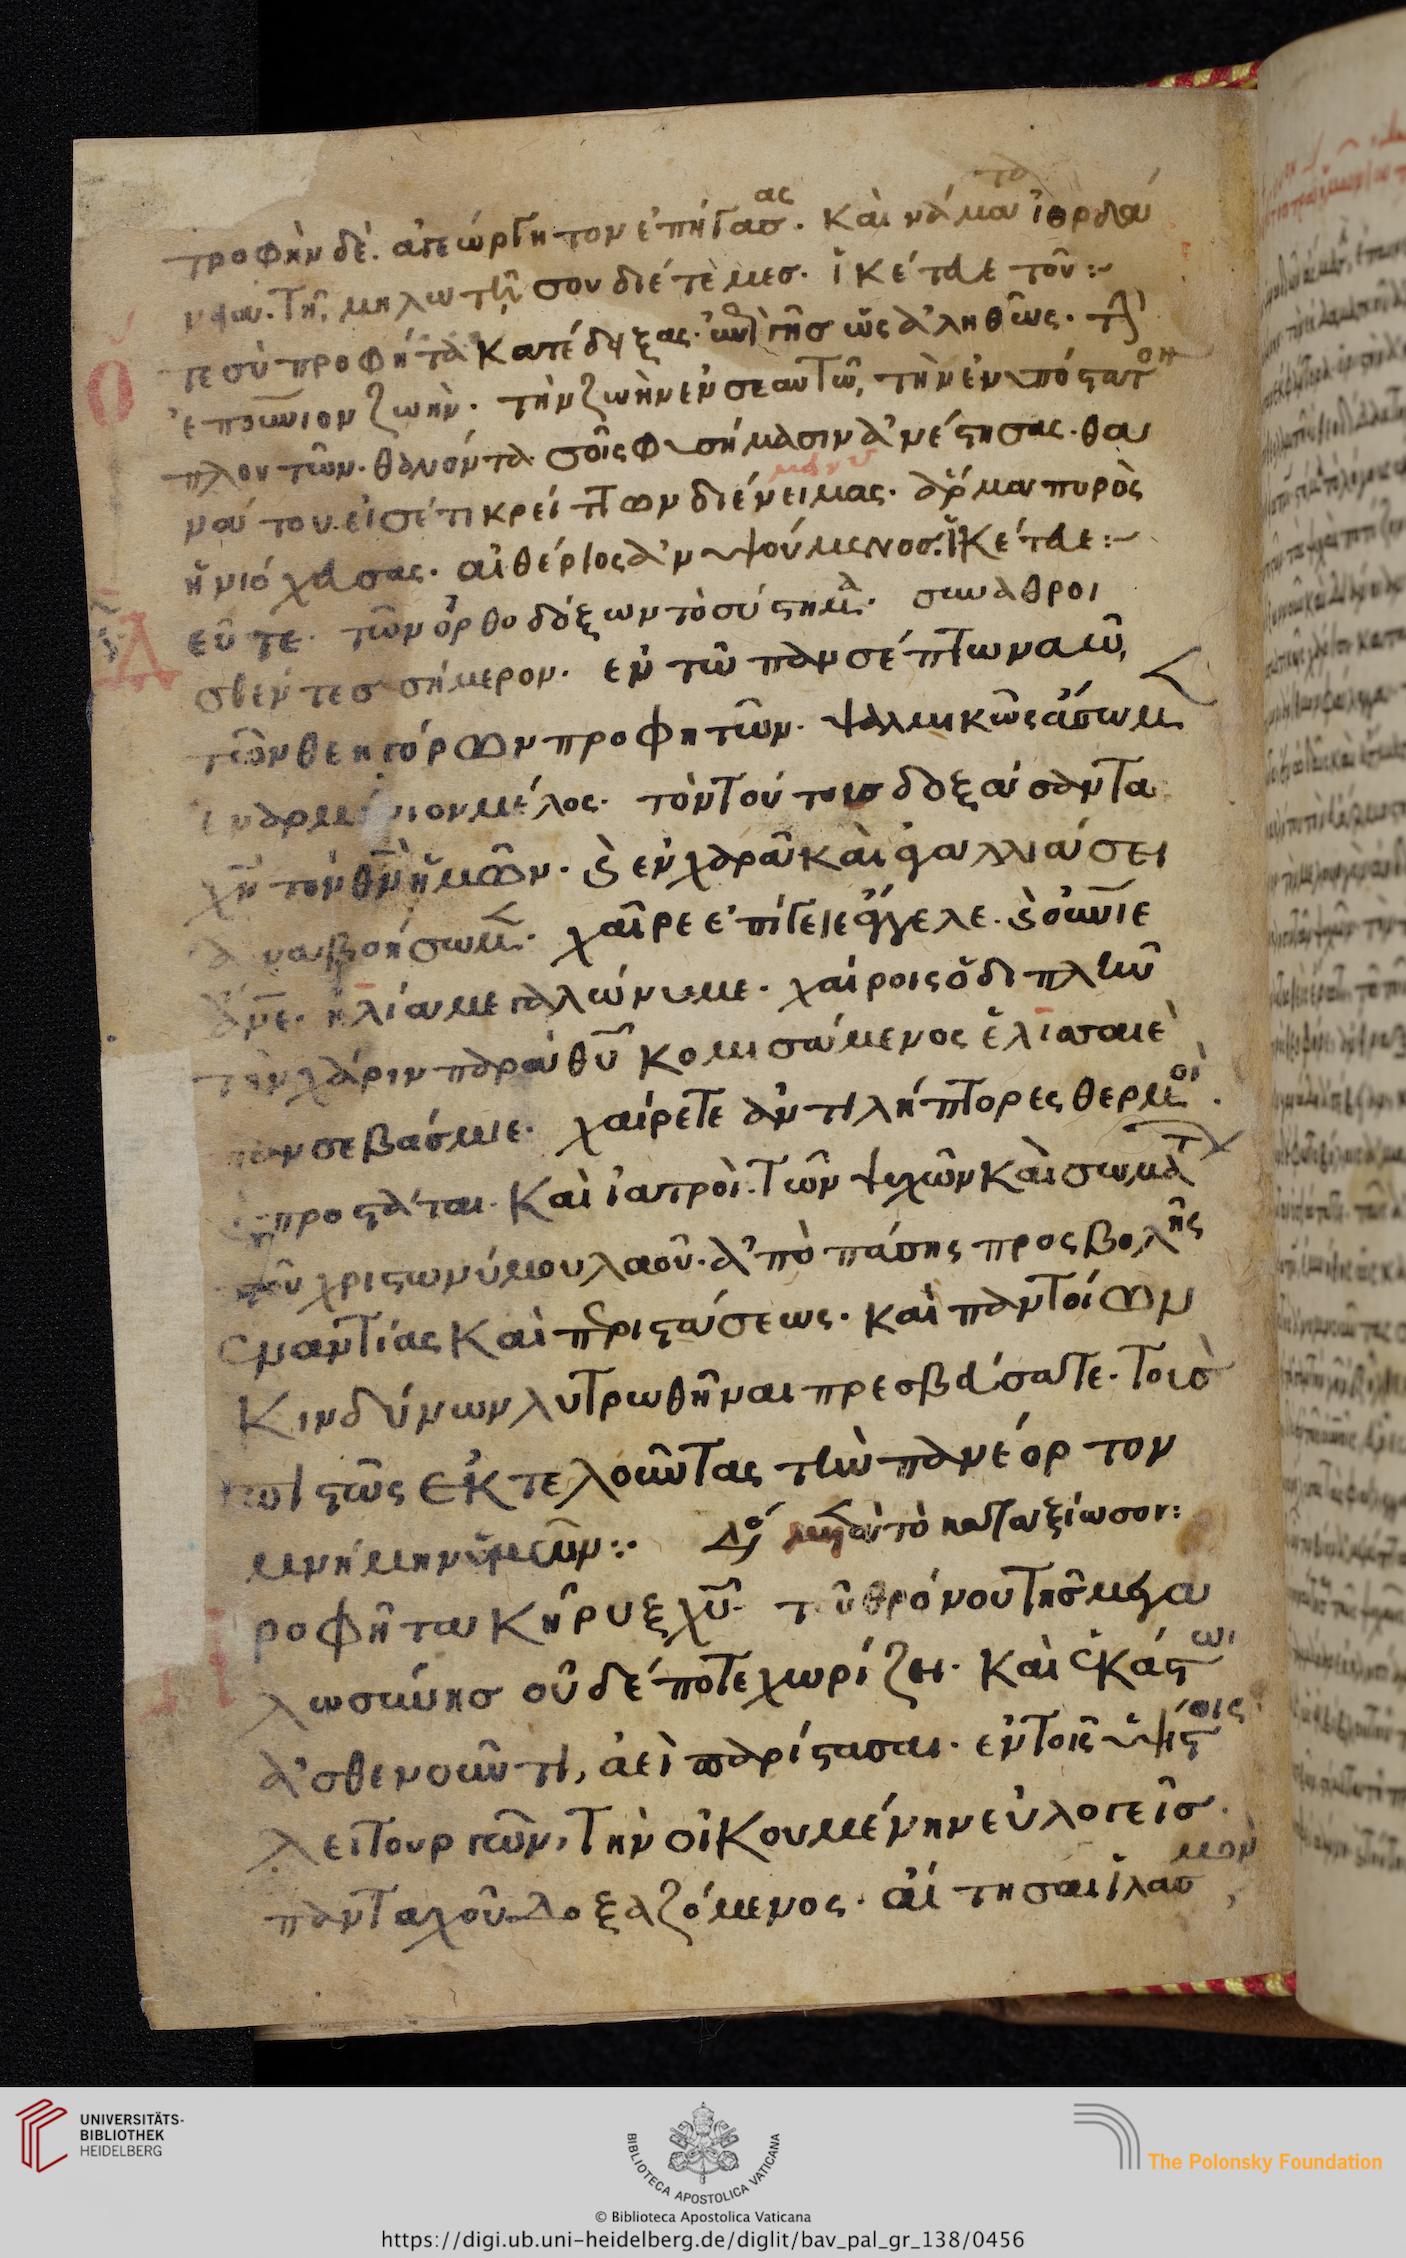 τροφὴν δὲ. ἀγεώργητον ἐπήγασας. καὶ νάματα ἰορδά
νου. τῇ μηλωτῇ σου διέτεμες. ἱκέταε τοῦ:~
γε σὺ προφήτα κατέδηξας.
ἐπουώνιον ζωὴν. τὴν ζωὴν ἐν σεαυτῶ, τὴν ἐνυπόστατον
πλουτῶν. θανόντα σοῖς φυσήμασιν ἀνέστησας. θα
νάτου εἰσέτι κρείττων διέμεινας. ἅρμα πυρὸς
ἡνιόχησας. αἰθέριος ἀνυψούμενος. ἱκέταε:~
εῦτε. τῶν ὀρθοδόξων τὸ σύστημα. συναθροι
σθέντες σήμερον. ἐν τῶ πανσέπτω ναῶ,
τῶν θεηγόρων προφητῶν. ψαλμικῶς ἄσωμ
ἐναρμόνιον μέλος. τὸν τούτους δοξάσαντα
χν τὸν θν ἡμῶν. καὶ ἐν χαρᾶ καὶ ἀγαλλιάσει
ἀναβοήσωμ. χαῖρε ἐπίγειε ἄγγελε. καὶ οὐνιε
ἄνε. ἠλία μεγαλώνυμε. χαίροις ὁ διπλῆν
τὴν χάριν παρὰ θυ κομισάμενος ἐλισσαιὲ
πανσεβάσμιε. χαίρετε ἀντιλήπτορες θερμοὶ.
προστάται. καὶ ἰατροὶ. τῶν ψυχῶν καὶ σωμάτ
τοῦ χριστωνύμου λαοῦ. ἀπὸ πάσης προσβολῆς
ἐναντίας καὶ περιστάσεως. καὶ παντοίων
κινδύνων λυτρωθῆναι πρεσβεύσατε. τοῖς
πιστῶς ἐκτελοῦντας τὴν πανέορτον
μνήμην ὑμῶν:· Δο αὐτὸ καταξίωσον:
ροφῆτα κῆρυξ χυ. τοῦ θρόνου τῆς μεγα
λωσύνης οὐδέποτε χωρίζει. καὶ ἑκάστωι
ἀσθενοῦντι, ἀεὶ παρίστασαι. ἐν τοῖς ὑψίστοις
λειτουργῶν, τὴν οἰκουμένην εὐλογεῖς.
πανταχοῦ δοξαζόμενος. αἴτησαι ἱλασμὸν,
UNIVERSITÄTS-
BIBLIOTHEK
HEIDELBERG
BIBLIOTECA APOSTOLICA VATICANA
The Polonsky Foundation
© Biblioteca Apostolica Vaticana
https://digi.ub.uni-heidelberg.de/diglit/bav_pal_gr_138/0456